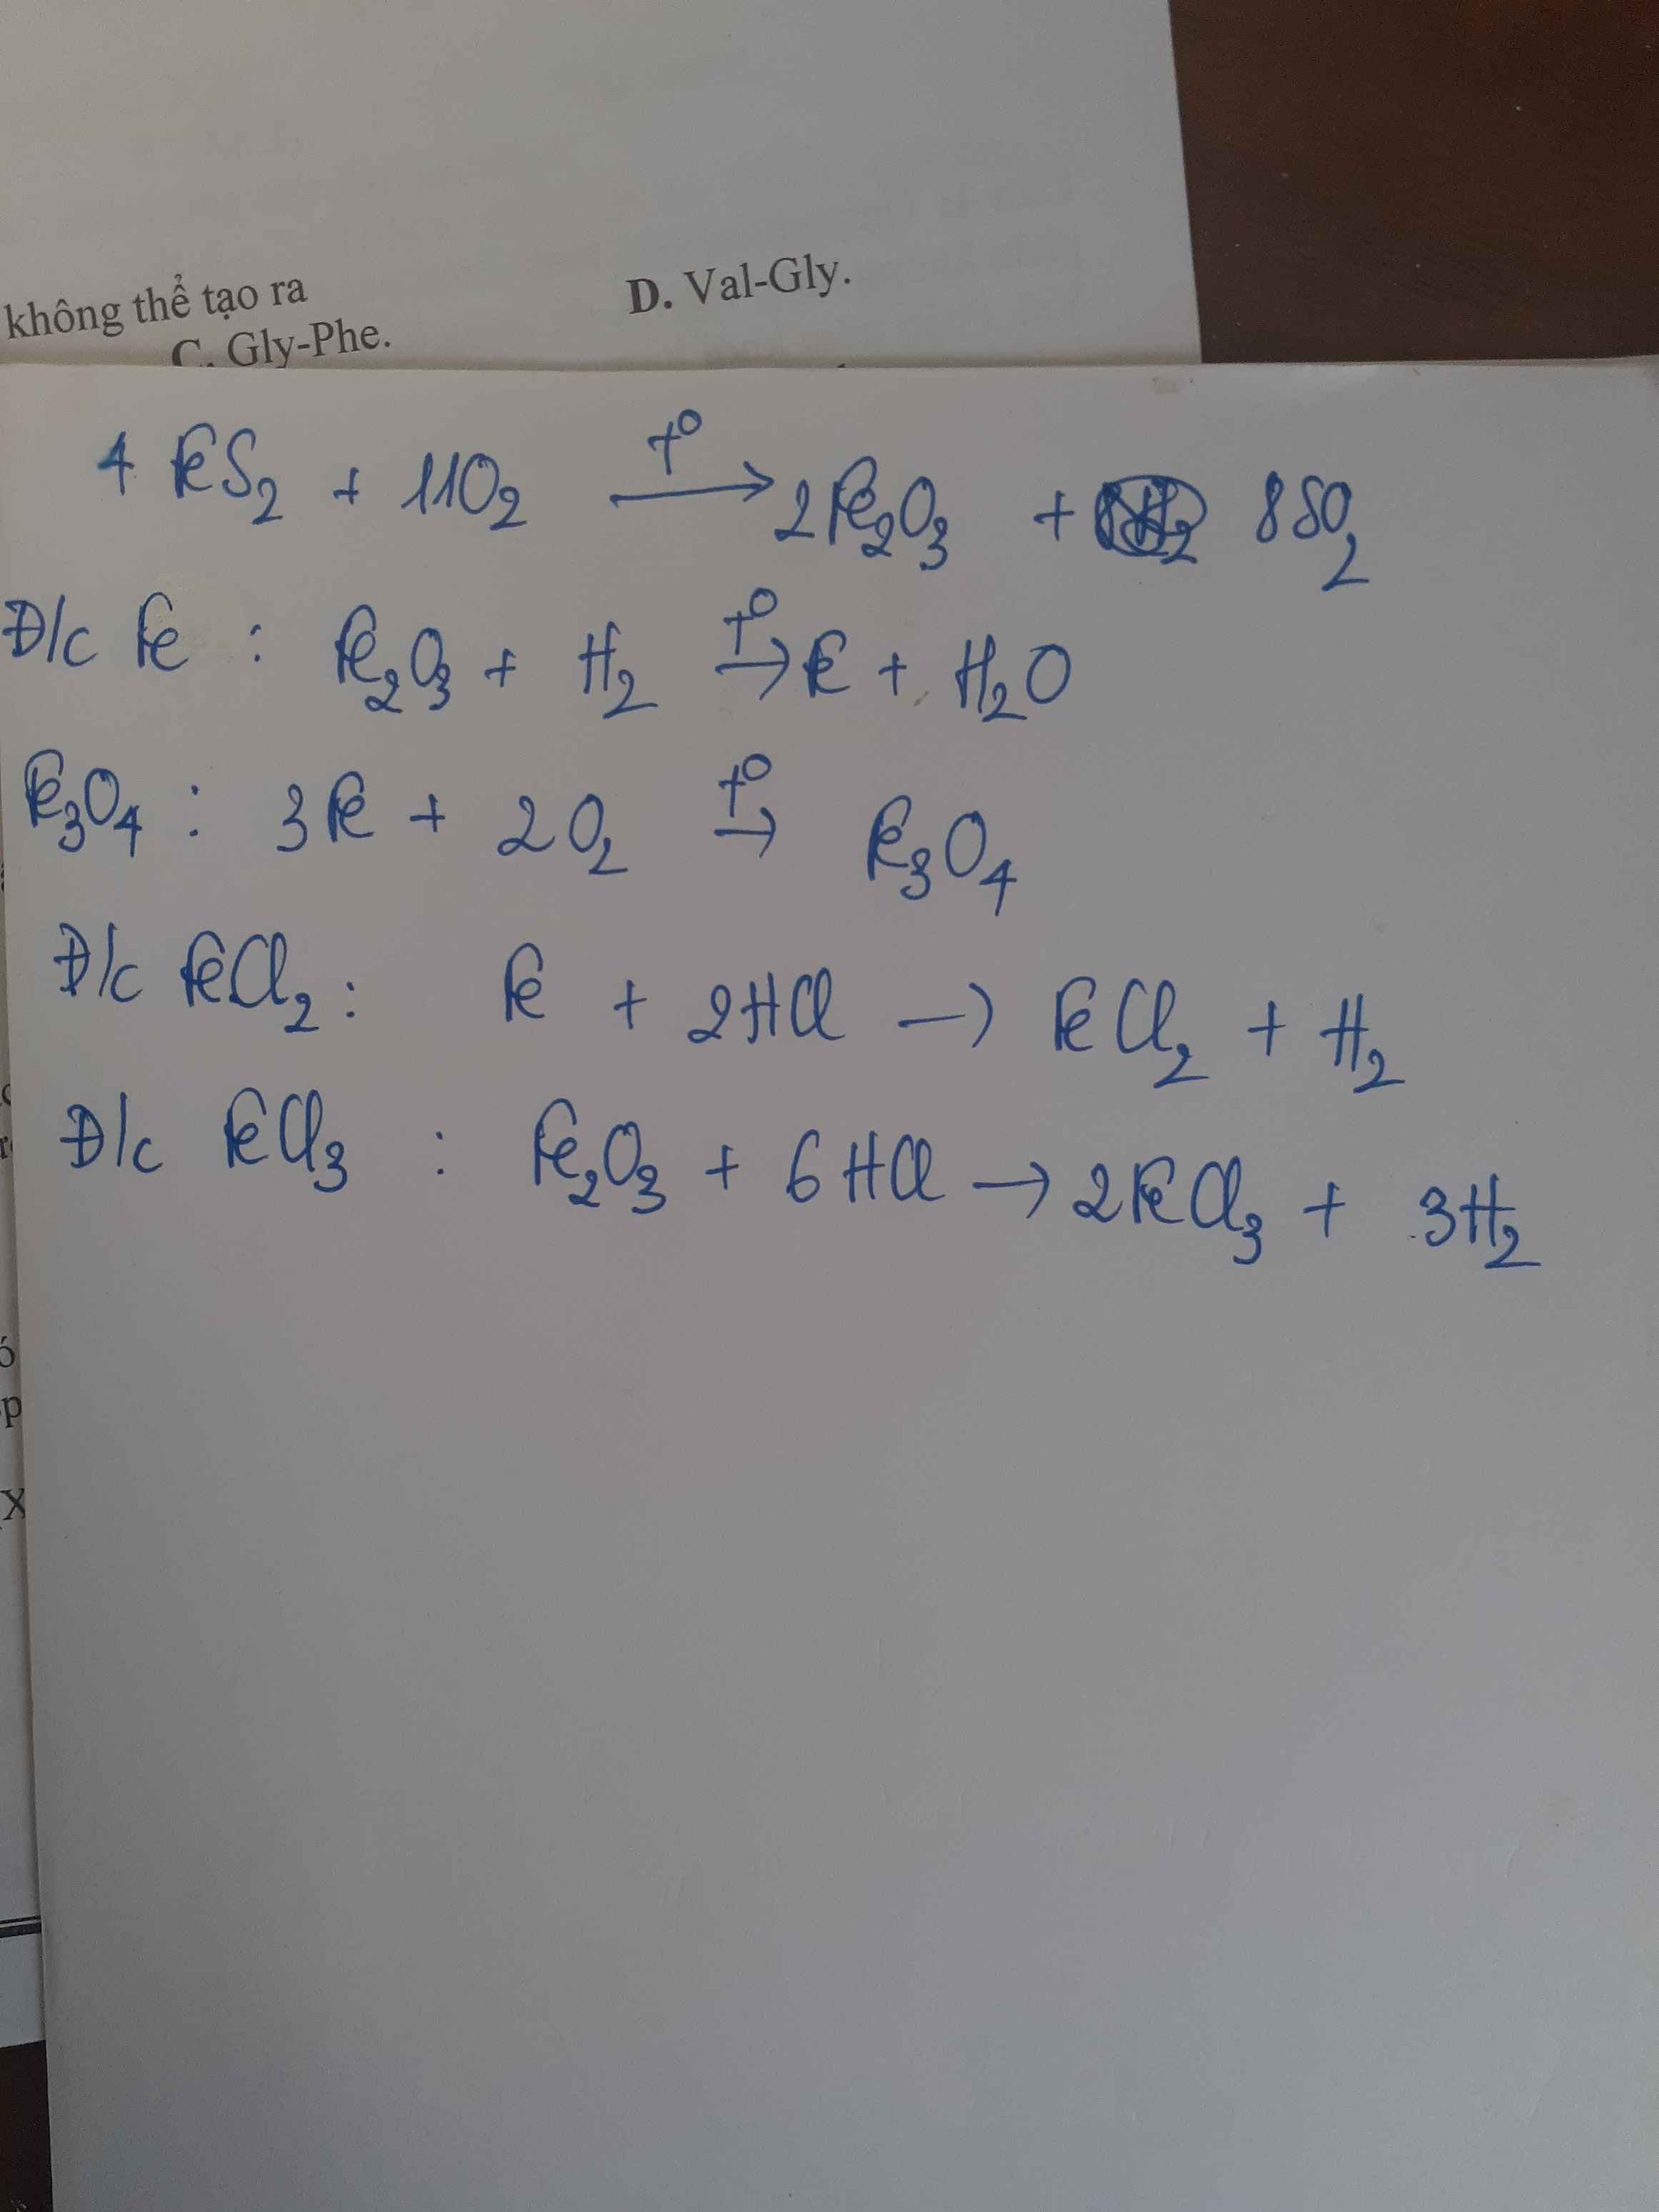 không thể tạo ra
C. Gly-Phe. D. Val-Gly.
4 FeS₂ + 11O₂ t⁰→ 2Fe₂O₃ + 8SO₂
Đ/c Fe : Fe₂O₃ + H₂ t⁰→ Fe + H₂O
Fe₃O₄ : 3Fe + 2O₂ t⁰→ Fe₃O₄
Đ/c FeCl₂ : Fe + 2HCl → FeCl₂ + H₂
Đ/c FeCl₃ : Fe₂O₃ + 6HCl → 2FeCl₃ + 3H₂